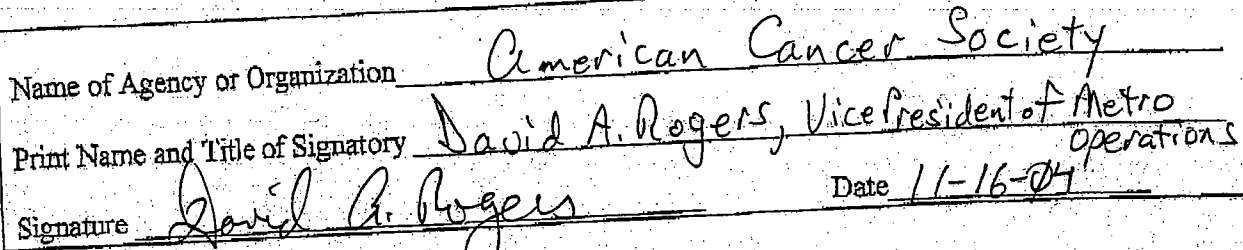 Name of Agency or Organization American Cancer Society
Print Name and Title of Signatory David A. Rogers, Vice President of Metro
operations
Signature David A. Rogers Date 11-16-04